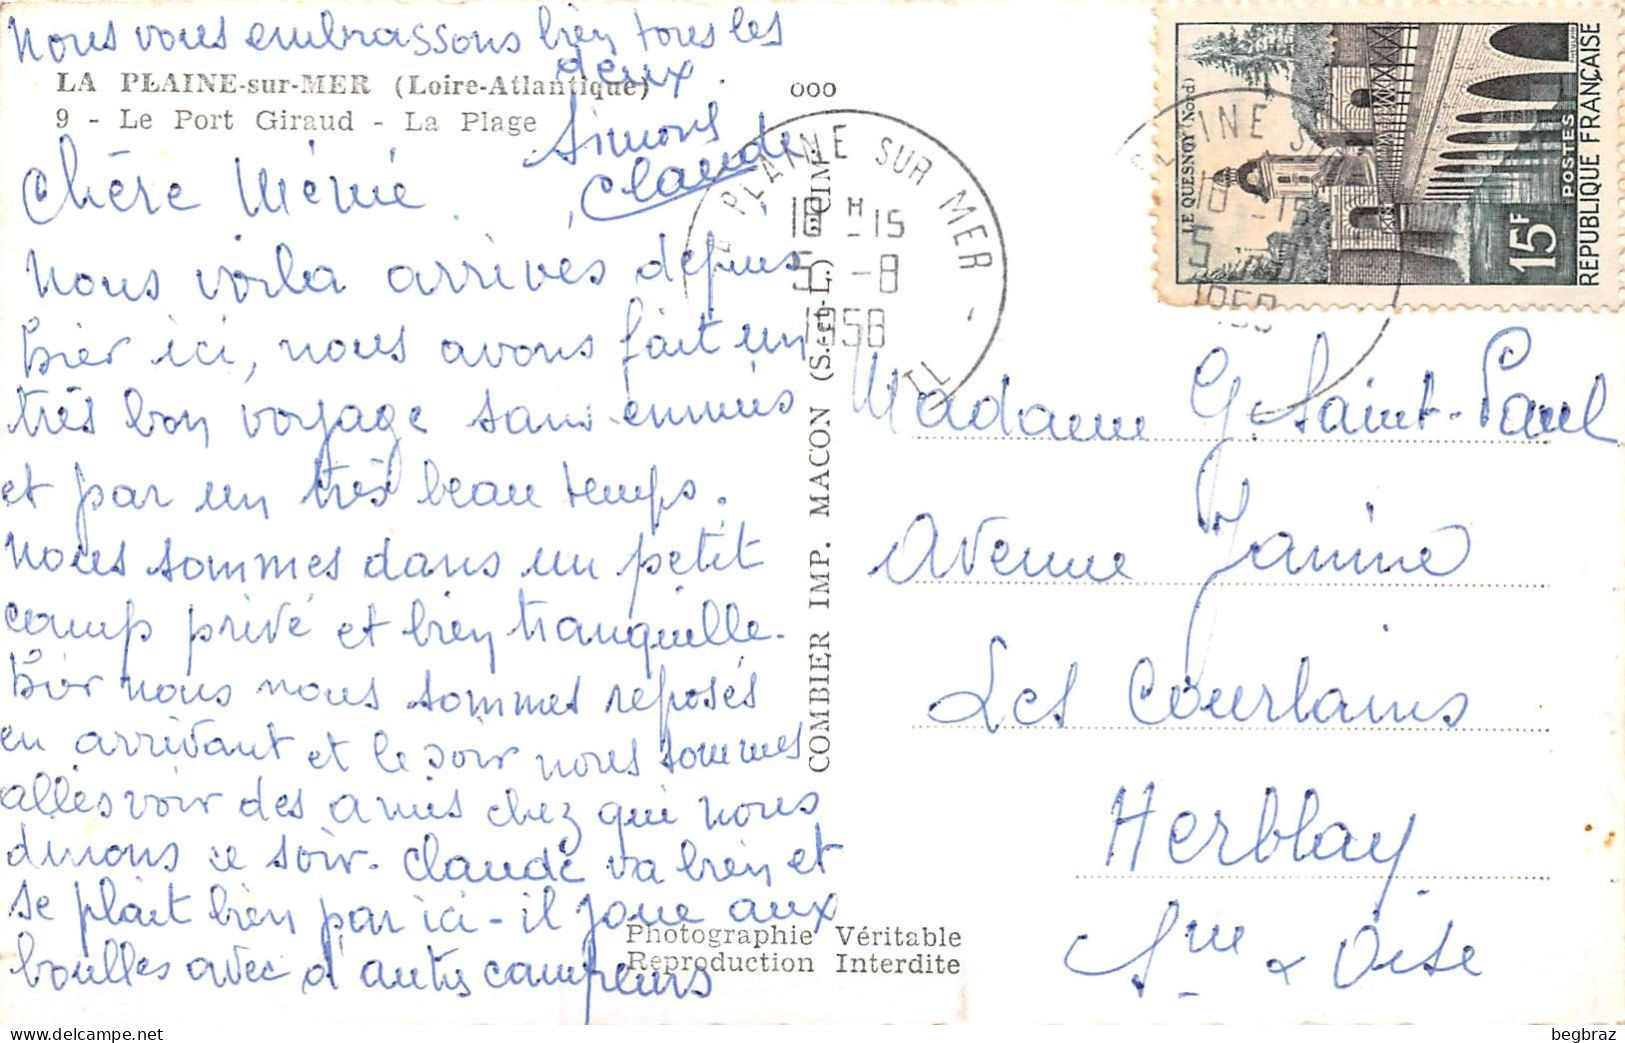 Nous vous embrassons bien tous les
deux.
LA PLAINE-sur-MER (Loire-Atlantique)
9 - Le Port Giraud - La Plage
ooo
Simons
Claude
Chère Mémé
Nous voila arrivés depuis
hier ici, nous avons fait un
très bon voyage sans ennuis
et par un très beau temps.
Nous sommes dans un petit
camp privé et bien tranquille.
Hier nous nous sommes reposés
en arrivant et le soir nous sommes
allés voir des amis chez qui nous
dinons ce soir. Claude va bien et
se plait bien par ici - il joue aux
boulles avec d'autres campeurs
Photographie Véritable
Reproduction Interdite
COMBIER IMP. MACON (S.-et-L.) "CIM"
PLAINE SUR MER
18 H -15
5 -8
1958
LE QUESNOY (Nord)
15F
POSTES
REPUBLIQUE FRANÇAISE
Madame G. Saint-Paul
Avenue Janine
Les Courlains
Herblay
Sne & Oise
begbraz